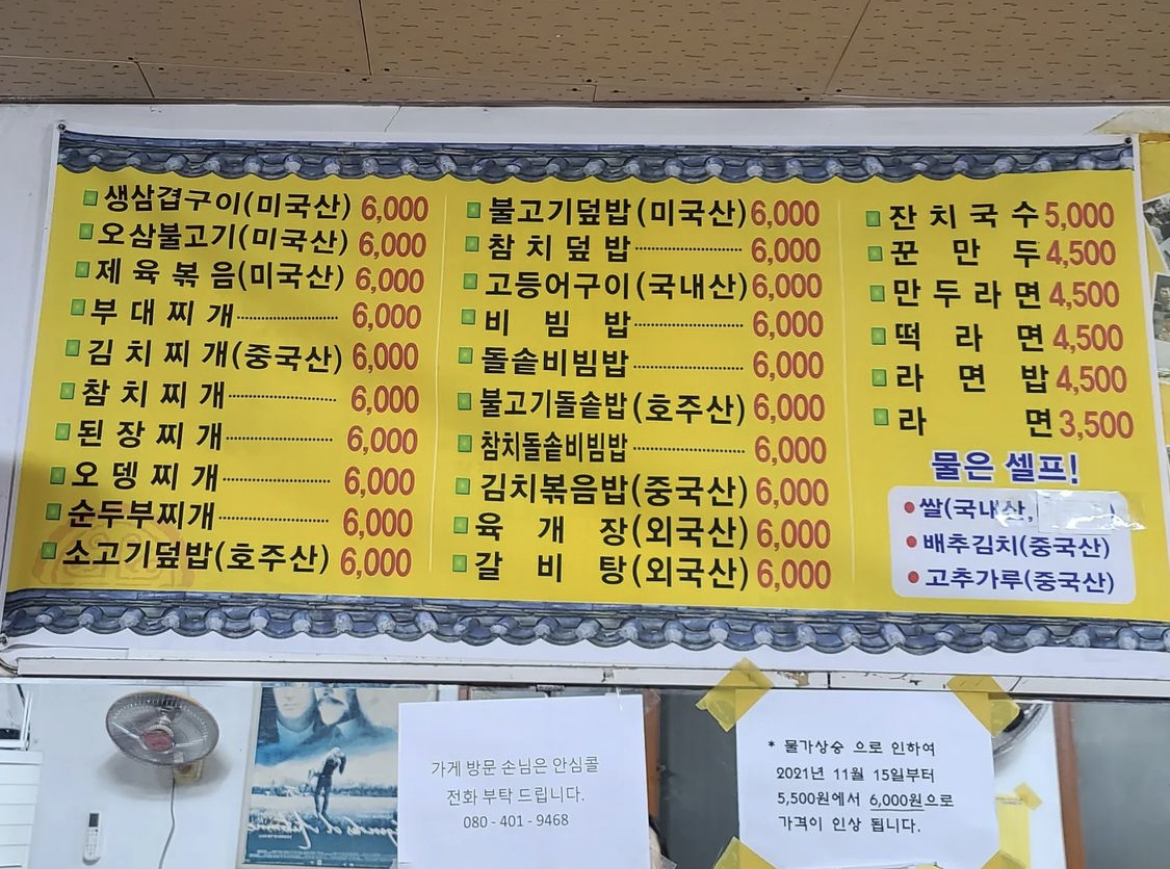 생삼겹구이(미국산) 6,000
오삼불고기(미국산) 6,000
제육볶음(미국산) 6,000
부대찌개 6,000
김치찌개(중국산) 6,000
참치찌개 6,000
된장찌개 6,000
오뎅찌개 6,000
순두부찌개 6,000
소고기덮밥(호주산) 6,000
불고기덮밥(미국산) 6,000
참치덮밥 6,000
고등어구이(국내산) 6,000
비빔밥 6,000
돌솥비빔밥 6,000
불고기돌솥밥(호주산) 6,000
참치돌솥비빔밥 6,000
김치볶음밥(중국산) 6,000
육개장(외국산) 6,000
갈비탕(외국산) 6,000
잔치국수 5,000
꾼만두 4,500
만두라면 4,500
떡라면 4,500
라면밥 4,500
라면 3,500
물은 셀프!
쌀(국내산, )
배추김치(중국산)
고추가루(중국산)
가게 방문 손님은 안심콜
전화 부탁 드립니다.
080 - 401 - 9468
* 물가상승 으로 인하여
2021년 11월 15일부터
5,500원에서 6,000원으로
가격이 인상 됩니다.